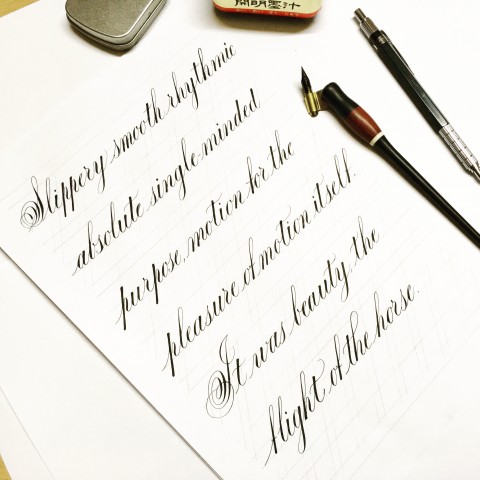 開明墨汁
Slippery smooth rhythmic
absolute single-minded
purpose, motion for the
pleasure of motion itself.
It was beauty, the
flight of the horse.